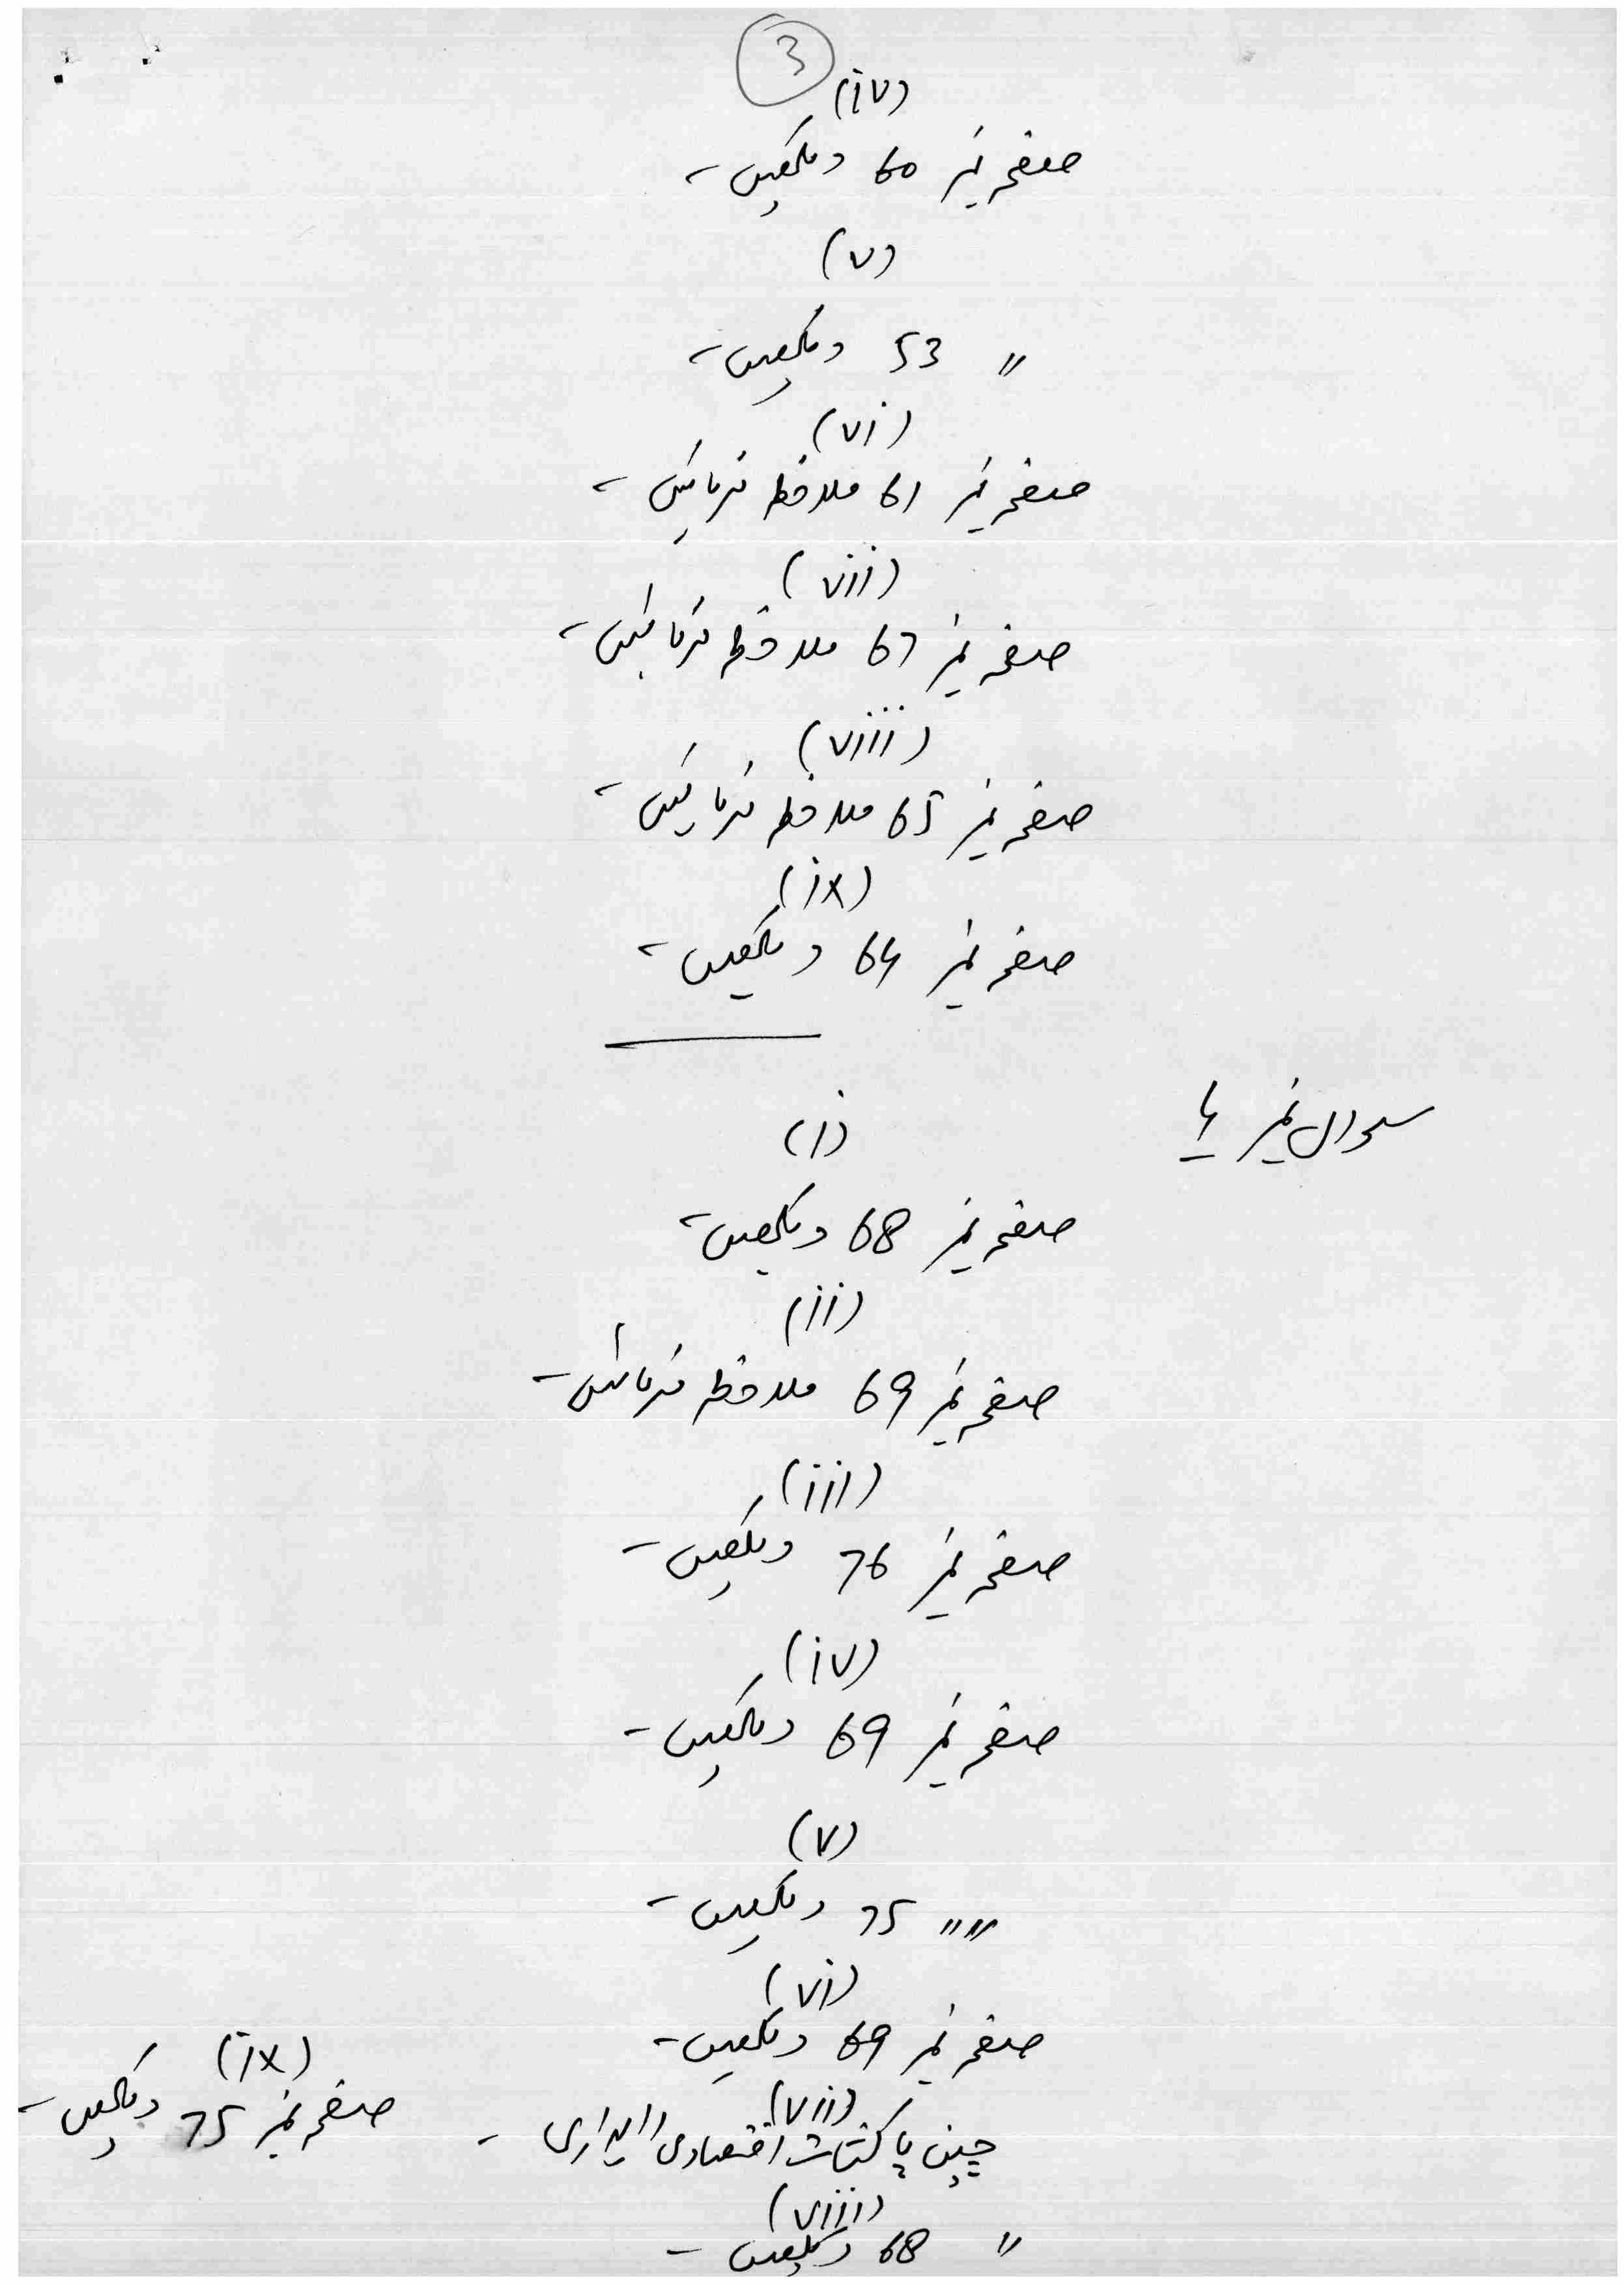 3
(iv)
صفحہ نمبر 60 دیکھیں۔
(v)
〃 53 دیکھیں۔
(vi)
صفحہ نمبر 61 ملاحظہ فرمائیں۔
(vii)
صفحہ نمبر 67 ملاحظہ فرمائیں۔
(viii)
صفحہ نمبر 65 ملاحظہ فرمائیں۔
(ix)
صفحہ نمبر 64 دیکھیں۔
سوال نمبر 4
(i)
صفحہ نمبر 68 دیکھیں۔
(ii)
صفحہ نمبر 69 ملاحظہ فرمائیں۔
(iii)
صفحہ نمبر 76 دیکھیں۔
(iv)
صفحہ نمبر 69 دیکھیں۔
(v)
〃〃 75 دیکھیں۔
(vi)
صفحہ نمبر 69 دیکھیں۔
(vii)
چین پاکستان اقتصادی راہداری۔
(viii)
〃 68 دیکھیں۔
(ix)
صفحہ نمبر 75 دیکھیں۔